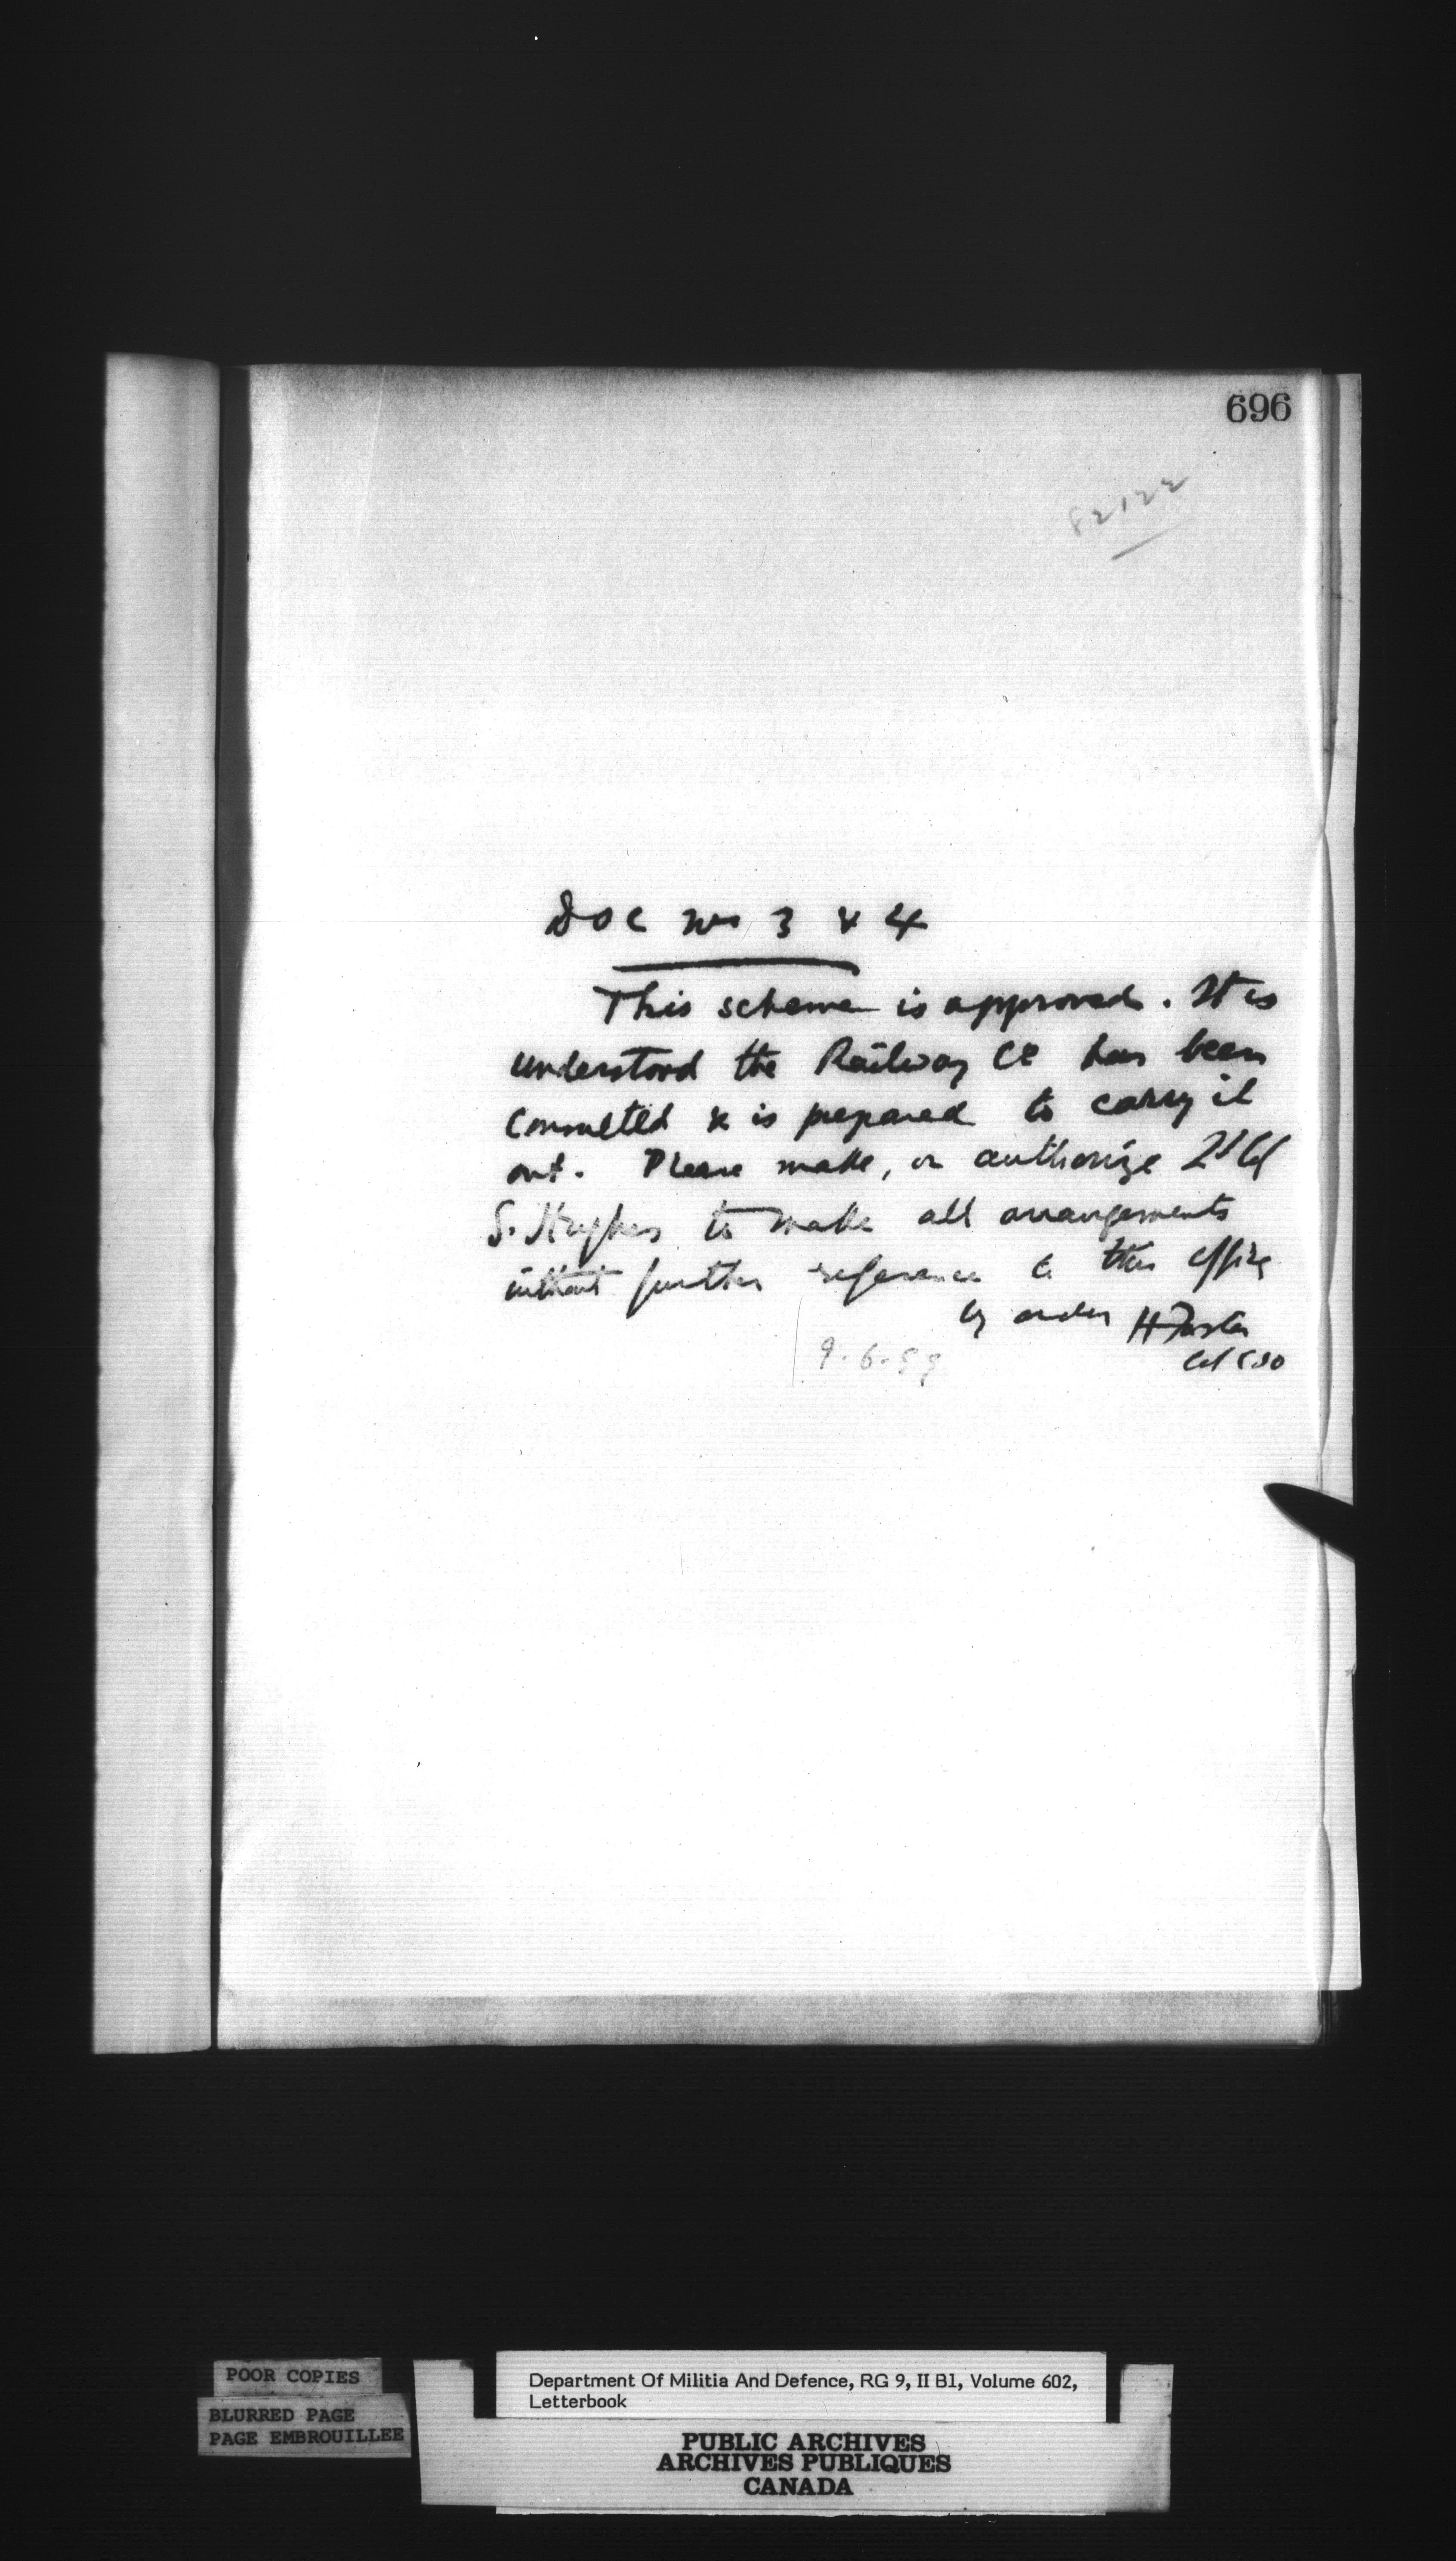 696
82122
DOC Nos 3 & 4
This scheme is approved. It is
understood the Railway Co has been
consulted & is prepared to carry it
out. Please make, or authorize Lt Col
S. Hughes to make all arrangements
without further reference to this office
by order H Foster
Col CSO
9.6.99
POOR COPIES
BLURRED PAGE
PAGE EMBROUILLEE
Department Of Militia And Defence, RG 9, II B1, Volume 602,
Letterbook
PUBLIC ARCHIVES
ARCHIVES PUBLIQUES
CANADA